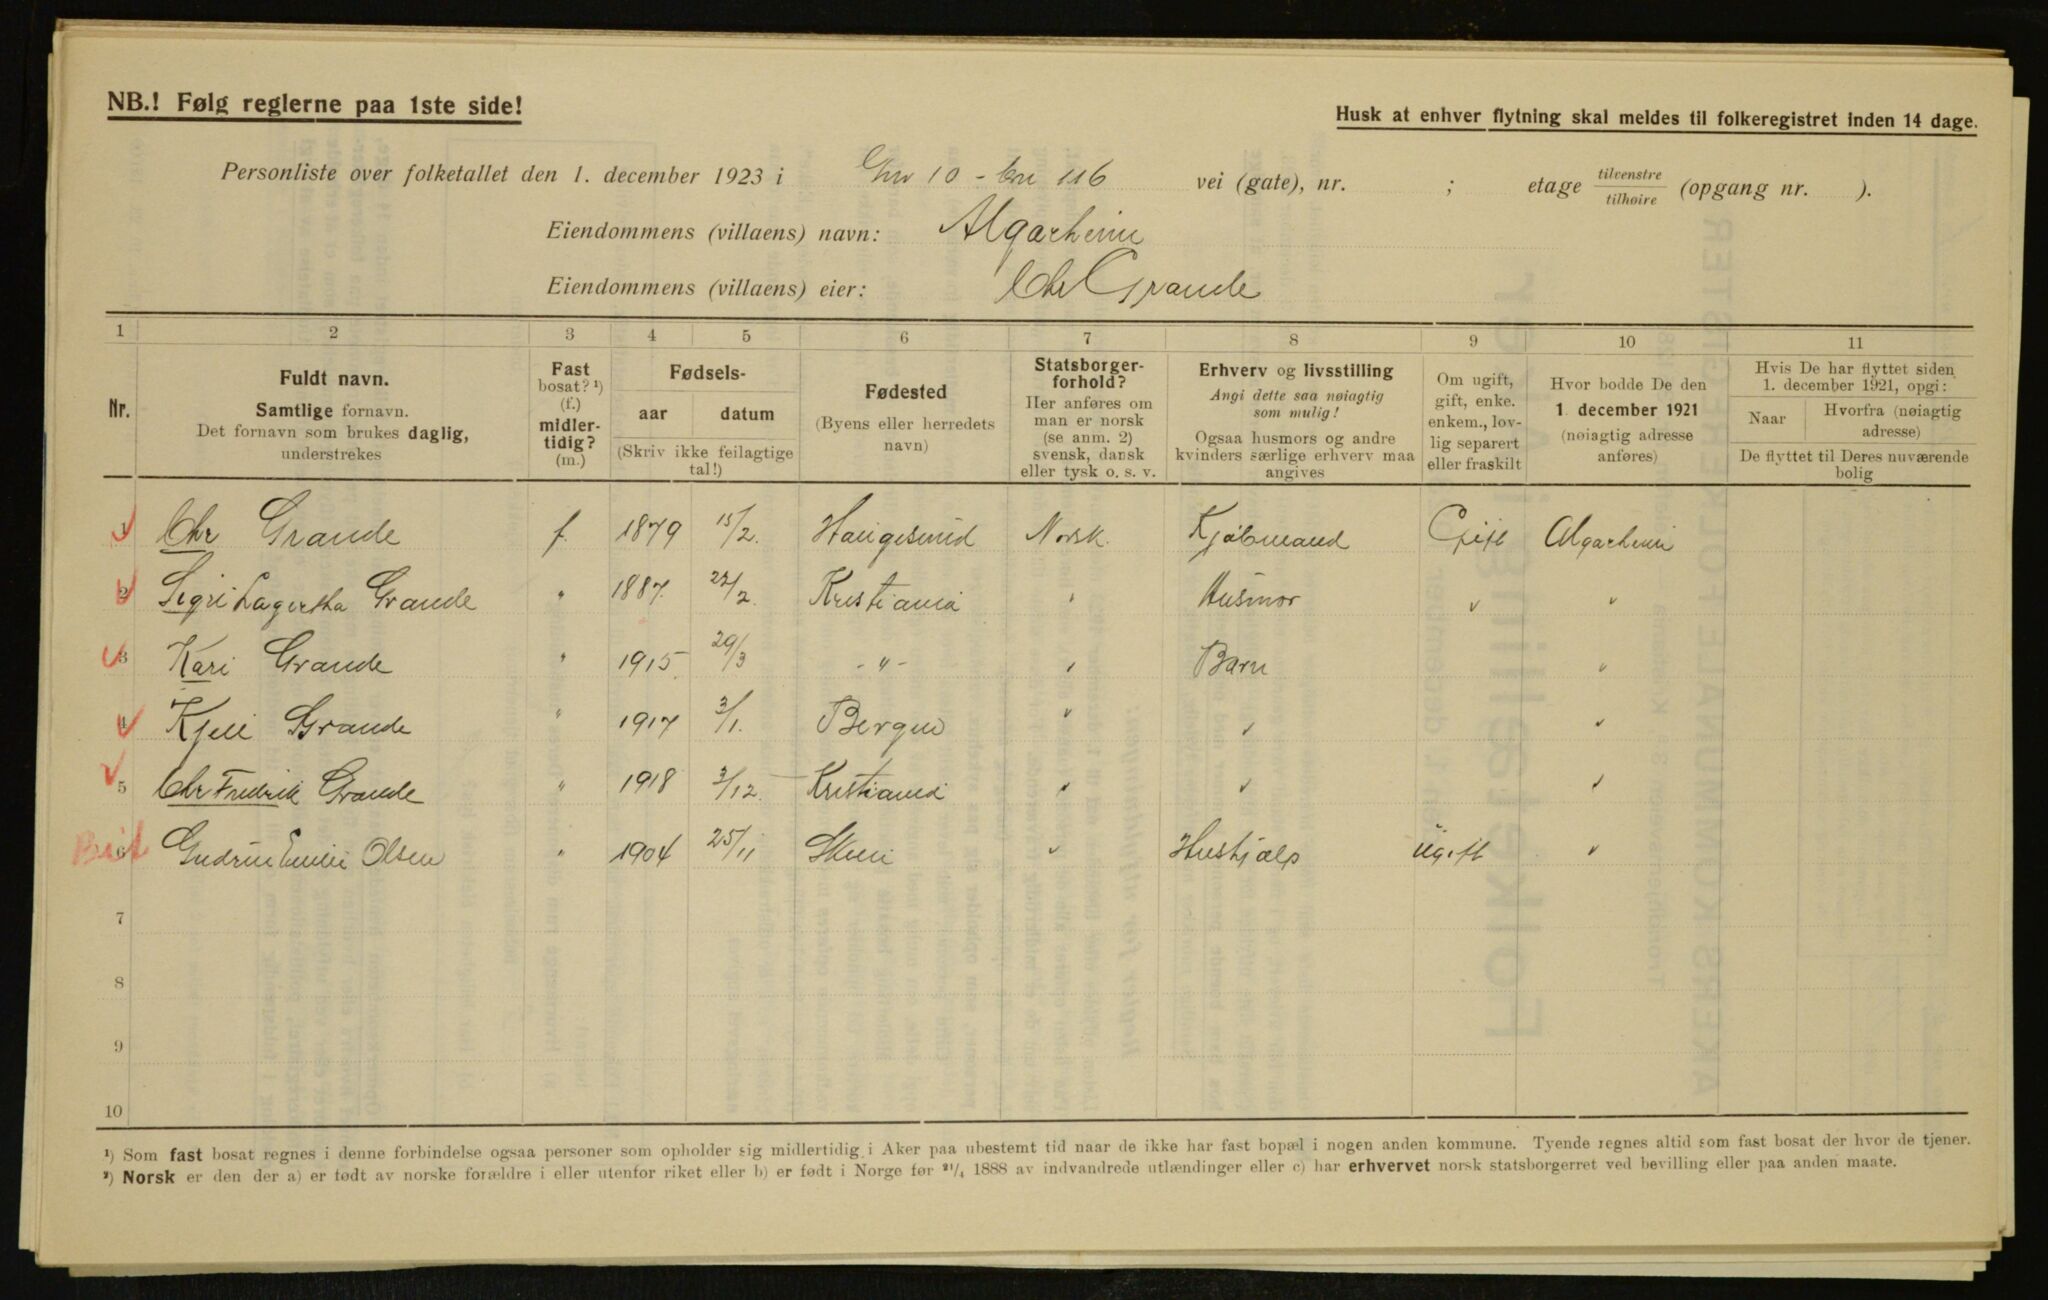 NB.! Følg reglerne paa 1ste side!
Husk at enhver flytning skal meldes til folkeregistret inden 14 dage.
Personliste over folketallet den 1. december 1923 i Gnr 10 - bnr 116 vei (gate), nr. ; etage tilvenstre/tilhøire (opgang nr. ).
Eiendommens (villaens) navn: Algarheim
Eiendommens (villaens) eier: Chr Grande
1 2 3 4 5 6 7 8 9 10 11
Nr.
Fuldt navn.
Samtlige fornavn.
Det fornavn som brukes daglig,
understrekes
Fast
bosat? ¹)
(f.)
midler-
tidig?
(m.)
Fødsels-
aar datum
(Skriv ikke feilagtige
tal!)
Fødested
(Byens eller herredets
navn)
Statsborger-
forhold?
Her anføres om
man er norsk
(se anm. 2)
svensk, dansk
eller tysk o. s. v.
Erhverv og livsstilling
Angi dette saa nøiagtig
som mulig!
Ogsaa husmors og andre
kvinders særlige erhverv maa
angives
Om ugift,
gift, enke.
enkem., lov-
lig separert
eller fraskilt
Hvor bodde De den
1. december 1921
(nøiagtig adresse
anføres)
Hvis De har flyttet siden
1. december 1921, opgi:
Naar Hvorfra (nøiagtig
adresse)
De flyttet til Deres nuværende
bolig
1 Chr Grande f. 1879 15/2. Haugesund Norsk. Kjøbmand Gift Algarheim
2 Sigri Lagertha Grande " 1887. 22/2. Kristiania " Husmor " "
3 Kari Grande " 1915. 29/3 - " - " Barn "
4 Kjell Grande " 1917 3/1. Bergen " " "
5 Chr Fredrik Grande " 1918 3/12. Kristiania " " "
6 Gudrun Emilie Olsen " 1904 25/11 Skien " Hushjælp Ugift "
7
8
9
10
¹) Som fast bosat regnes i denne forbindelse ogsaa personer som opholder sig midlertidig i Aker paa ubestemt tid naar de ikke har fast bopæl i nogen anden kommune. Tyende regnes altid som fast bosat der hvor de tjener.
²) Norsk er den der a) er født av norske forældre i eller utenfor riket eller b) er født i Norge før ²¹/₄ 1888 av indvandrede utlændinger eller c) har erhvervet norsk statsborgerret ved bevilling eller paa anden maate.